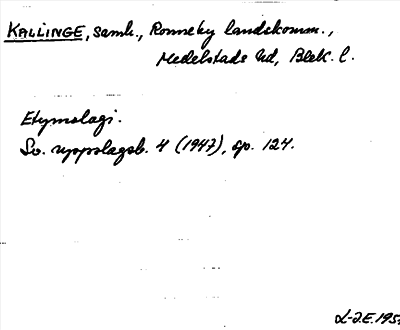 KALLINGE, samh., Ronneby landskomm.,
Medelstads hd, Blek. l.
Etymologi.
Sv. uppslagsb. 4 (1947), sp. 124.
L-J.E. 195